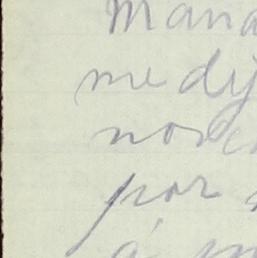 Mana
me dij
nove
por
á m